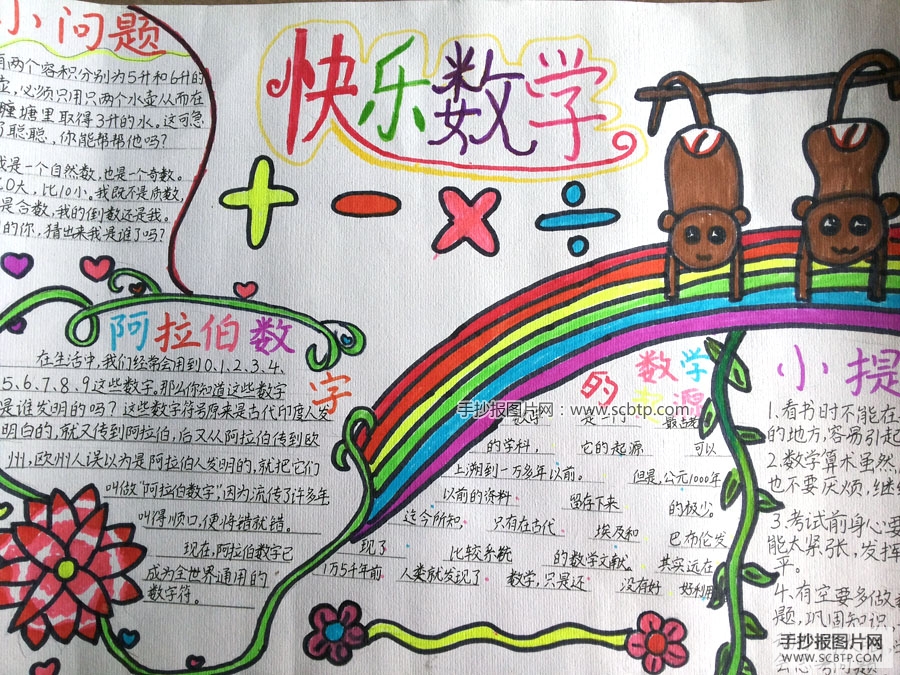 小问题
有两个容积分别为5升和6升的
壶,必须只用只两个水壶从而在
塘里取得3升的水。这可急
了聪聪,你能帮帮他吗?
我是一个自然数,也是一个奇数。
0大,比10小。我既不是质数,
是合数,我的倒数还是我。
的你,猜出来我是谁了吗?
快乐数学
+ - × ÷
阿拉伯数
字
在生活中,我们经常会用到0.1.2.3.4.
5.6.7.8.9这些数字。那么你知道这些数字
是谁发明的吗?这些数字符号原来是古代印度人发
明白的,就又传到阿拉伯,后又从阿拉伯传到欧
州,欧州人误以为是阿拉伯人发明的,就把它们
叫做“阿拉伯数字”,因为流传了许多年
叫得顺口,便将错就错。
现在,阿拉伯数字已
成为全世界通用的
数字符。
数学
的
起源
手抄报图片网:www.scbtp.com
数学 是一门 最古老
的学科, 它的起源 可以
上溯到一万多年以前。 但是,公元1000年
以前的资料 留存下来 的极少。
迄今所知, 只有在古代 埃及和 巴布伦发
现了 比较系统 的数学文献。 其实远在
1万5千年前 人类就发现了 数学,只是还 没有好 好利用
小提
1.看书时不能在
的地方,容易引起
2.数学算术虽然,
也不要厌烦,继续
3.考试前身心要
能太紧张,发挥
平。
4.有空要多做
题,巩固知识,
手抄报图片网
WWW.SCBTP.COM